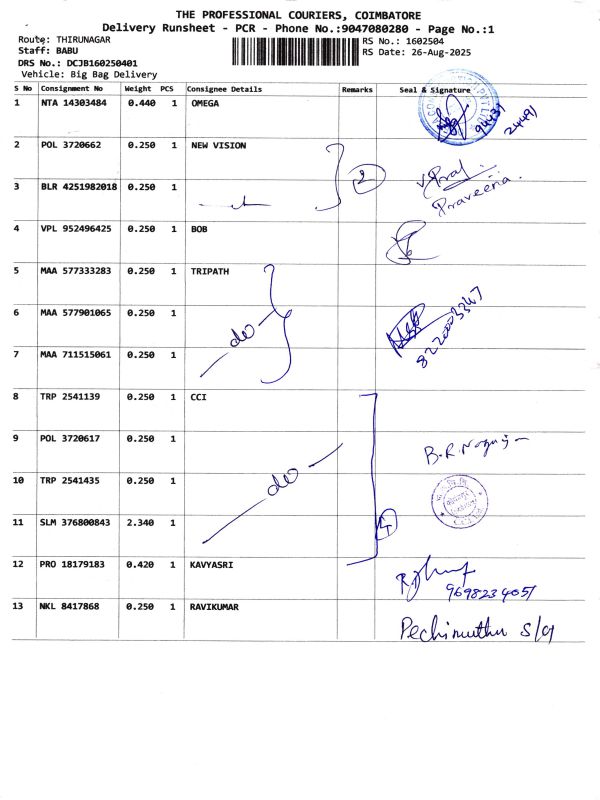 THE PROFESSIONAL COURIERS, COIMBATORE
Delivery Runsheet - PCR - Phone No.:9047080280 - Page No.:1
Route: THIRUNAGAR
RS No.: 1602504
Staff: BABU
RS Date: 26-Aug-2025
DRS No.: DCJB160250401
Vehicle: Big Bag Delivery
S No Consignment No Weight PCS Consignee Details Remarks Seal & Signature
1 NTA 14303484 0.440 1 OMEGA
94431
24491
2 POL 3720662 0.250 1 NEW VISION
2
3 BLR 4251982018 0.250 1
Praveena.
4 VPL 952496425 0.250 1 BOB
5 MAA 577333283 0.250 1 TRIPATH
6 MAA 577901065 0.250 1
do
8220003347
7 MAA 711515061 0.250 1
8 TRP 2541139 0.250 1 CCI
9 POL 3720617 0.250 1
10 TRP 2541435 0.250 1
do
11 SLM 376800843 2.340 1
4
12 PRO 18179183 0.420 1 KAVYASRI
9698234051
13 NKL 8417868 0.250 1 RAVIKUMAR
Pechimuthu S/g